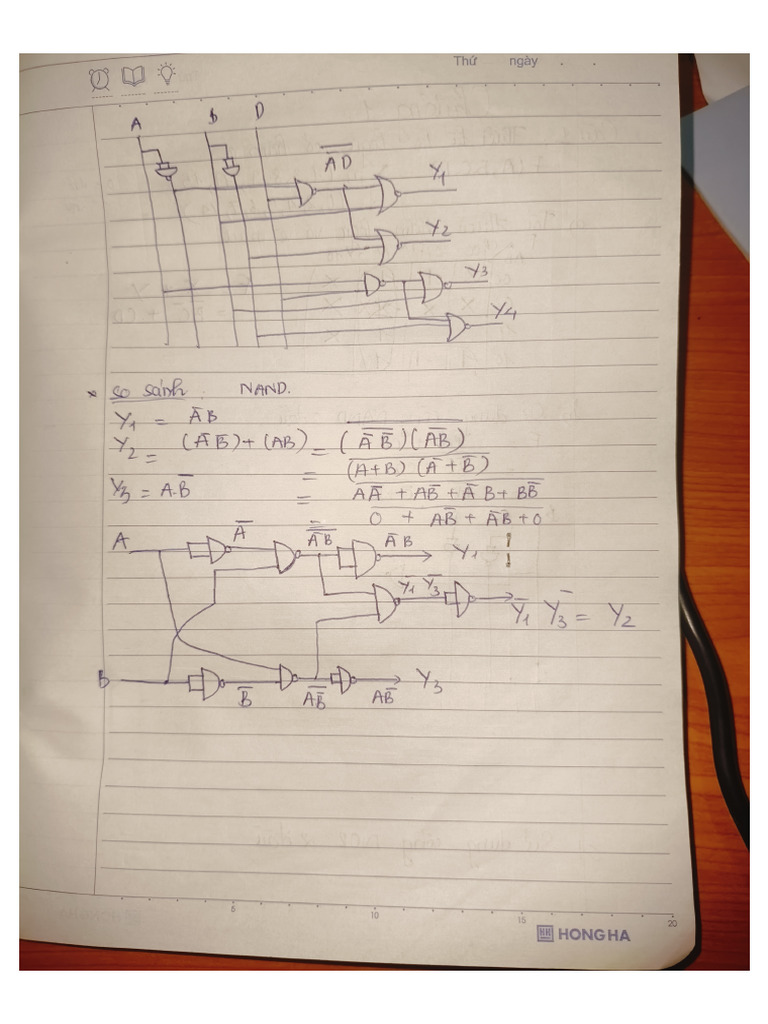 Thứ ngày . .
A B D
A̅D̅
Y₁
Y₂
Y₃
Y₄
* so sánh : NAND.
Y₁ = A̅B
Y₂ = (A̅ B̅) + (AB) = \overline{(\overline{A̅ B̅})(\overline{AB})}
= \overline{(A+B) (A̅ + B̅)}
Y₃ = A.B̅ = \overline{AA̅ + AB̅ + A̅B + BB̅}
\overline{0 + AB̅ + A̅B + 0}
A A̅ \overline{A̅B} A̅B Y₁
Y̅₁ Y̅₃ Y̅₁ Y̅₃ = Y₂
B B̅ \overline{AB̅} AB̅ Y₃
5 10 15 20
HH HONG HA